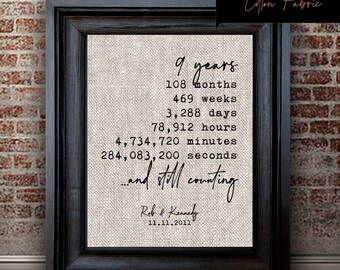 Cotton Fabric
9 years
108 months
469 weeks
3,288 days
78,912 hours
4,734,720 minutes
284,083,200 seconds
...and still counting
Rob & Kennedy
11.11.2011